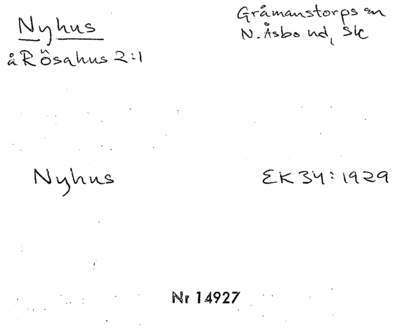 Nyhus
Gråmanstorps sn
N. Åsbo hd, Sk
å Rösahus 2:1
Nyhus
EK 34:1929
Nr 14927